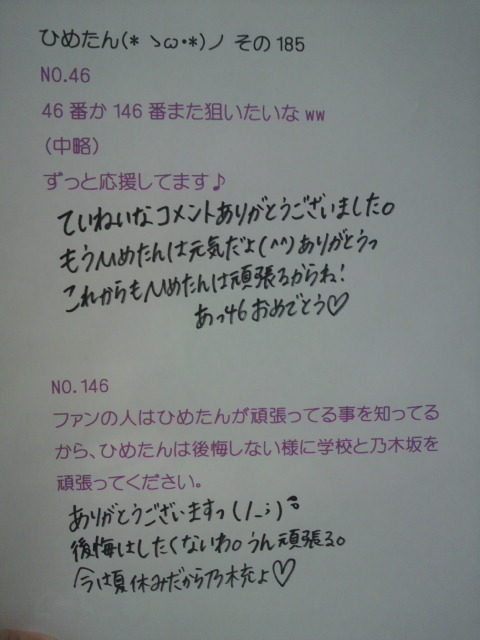 ひめたん(*ゝω・*)ノ その185
NO.46
46番か146番また狙いたいなww
(中略)
ずっと応援してます♪
ていねいなコメントありがとうございました。
もうひめたんは元気だよ(^^)ありがとうっ
これからもひめたんは頑張るからね!
あっ46おめでとう♡
NO.146
ファンの人はひめたんが頑張ってる事を知ってる
から、ひめたんは後悔しない様に学校と乃木坂を
頑張ってください。
ありがとうございますっ(/_;)
後悔はしたくないわ。うん頑張る。
今は夏休みだから乃木充よ♡